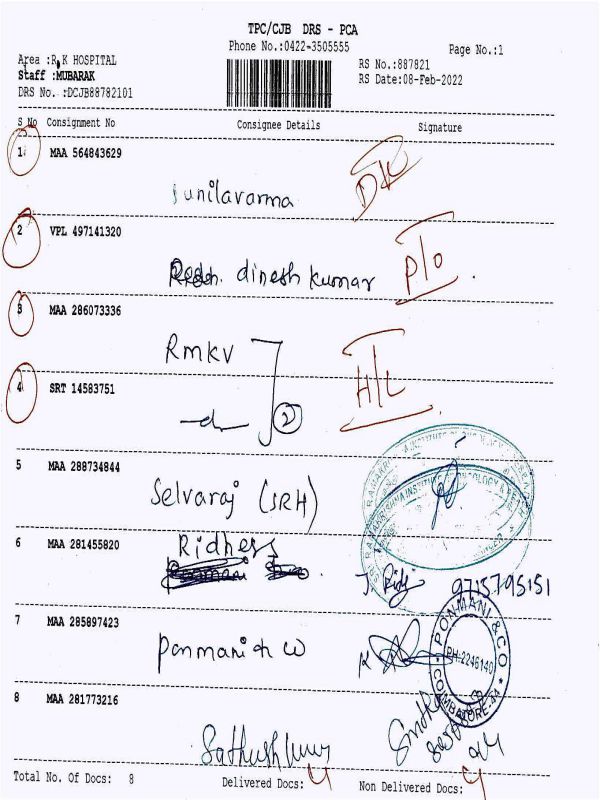 TPC/CJB DRS - PCA
Phone No.:0422-3505555
Page No.:1
Area :R.K HOSPITAL
RS No.:887821
Staff :MUBARAK
RS Date:08-Feb-2022
DRS No. :DCJB88782101
S No Consignment No Consignee Details Signature
1 MAA 564843629
Sunilavarma
2 VPL 497141320
dinesh kumar P/O
3 MAA 286073336
RMKV
H/L
4 SRT 14583751
2
5 MAA 288734844
Selvaraj (SRH)
6 MAA 281455820
Ridhess
9715795151
7 MAA 285897423
PONMANI & CO
PH:2246140
COIMBATORE-44
8 MAA 281773216
Total No. Of Docs: 8 Delivered Docs: 4 Non Delivered Docs: 4